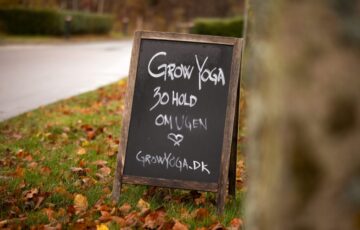 GROW YOGA
30 HOLD
OM UGEN
GROWYOGA.DK